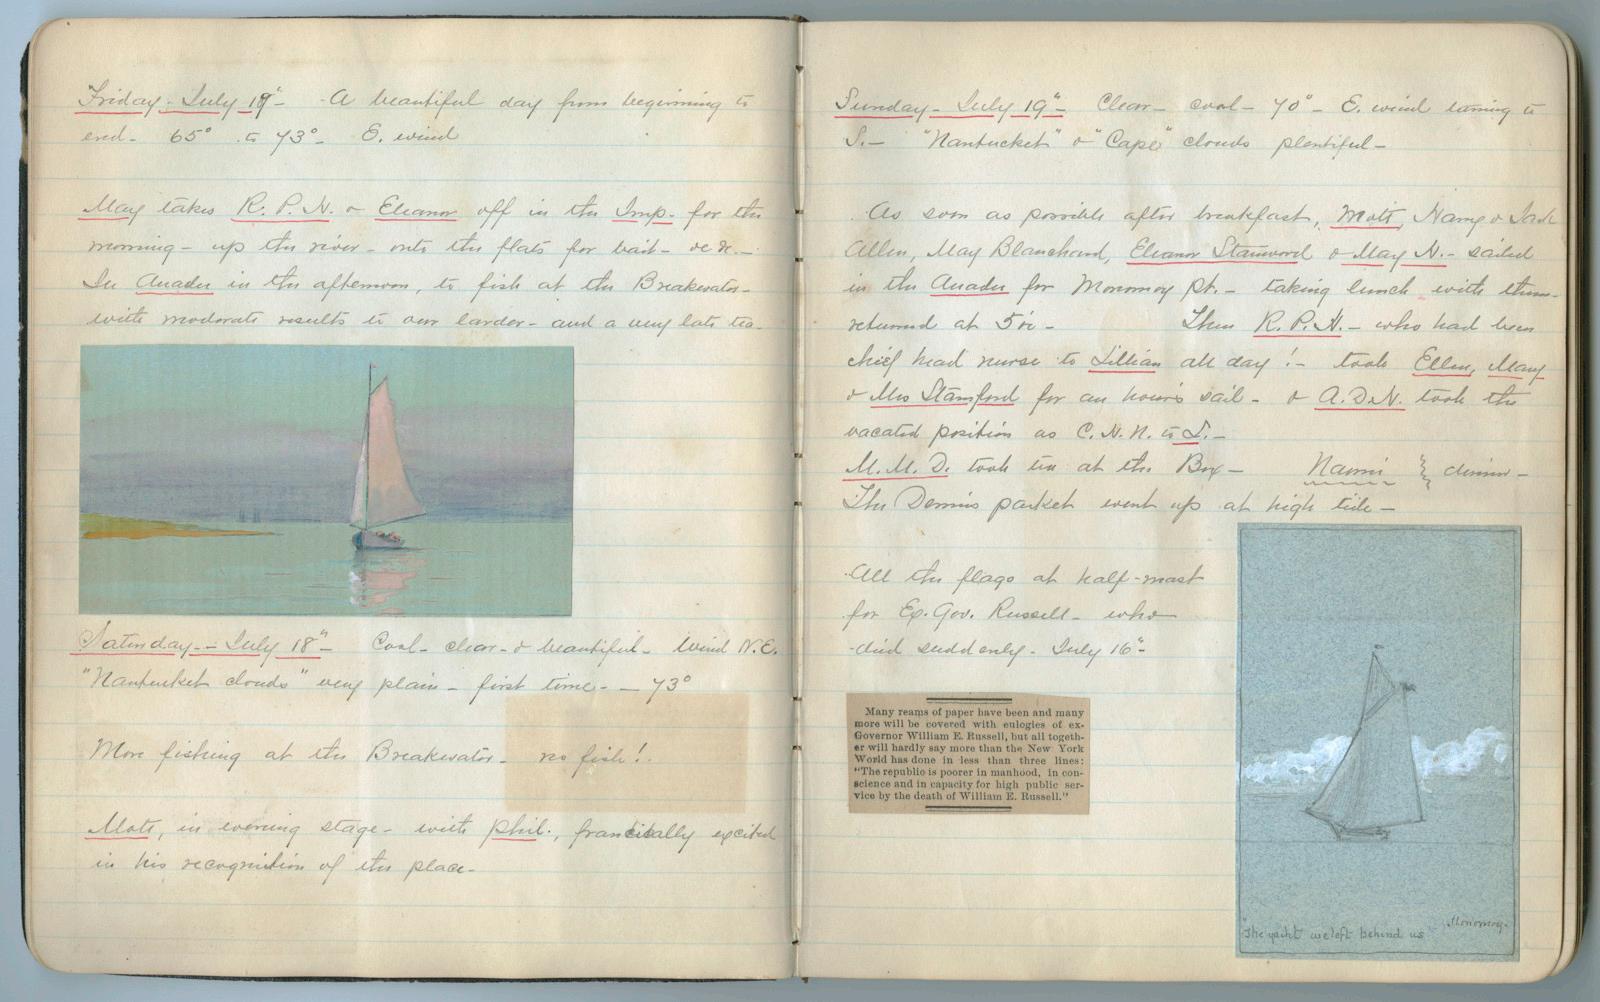 Friday - July 17" - A beautiful day from beginning to
end - 65° to 73° - E. wind
May takes R. P. N. & Eleanor off in the Imp - for the
morning - up the river - onto the flats for bait - &c &c. -
In Anadir in the afternoon, to fish at the Breakwater -
with moderate results to our larder - and a very late tea -
Saturday - July 18" - Cool - clear - & beautiful - Wind N.E.
"Nantucket clouds" very plain - first time - - 73°
More fishing at the Breakwater - no fish!
Mott, in evening stage - with Phil., frantically excited
in his recognition of the place -
Sunday - July 19" - Clear - cool - 70° - E. wind turning to
S. - "Nantucket" & "Cape" clouds plentiful -
As soon as possible after breakfast, Mott, Nancy & Jack
Allen, May Blanchard, Eleanor & May N. - sailed
in the Anadir for Monomoy Pt. - taking lunch with them -
returned at 5 - Then R. P. N. - who had been
chief head nurse to Lillian all day! - took Ellen, Mary
& Mrs Stanford for an hour's sail - & A. D. N. took the
vacated position as C. H. N. to L. -
M. M. D. took tea at the Bay - Naomi } dinner -
The Dennis packet went up at high tide -
All the flags at half-mast
for Ex. Gov. Russell - who
died suddenly - July 16" -
Many reams of paper have been and many
more will be covered with eulogies of ex-
Governor William E. Russell, but all togeth-
er will hardly say more than the New York
World has done in less than three lines:
"The republic is poorer in manhood, in con-
science and in capacity for high public ser-
vice by the death of William E. Russell."
Monomoy -
"The yacht we left behind us"